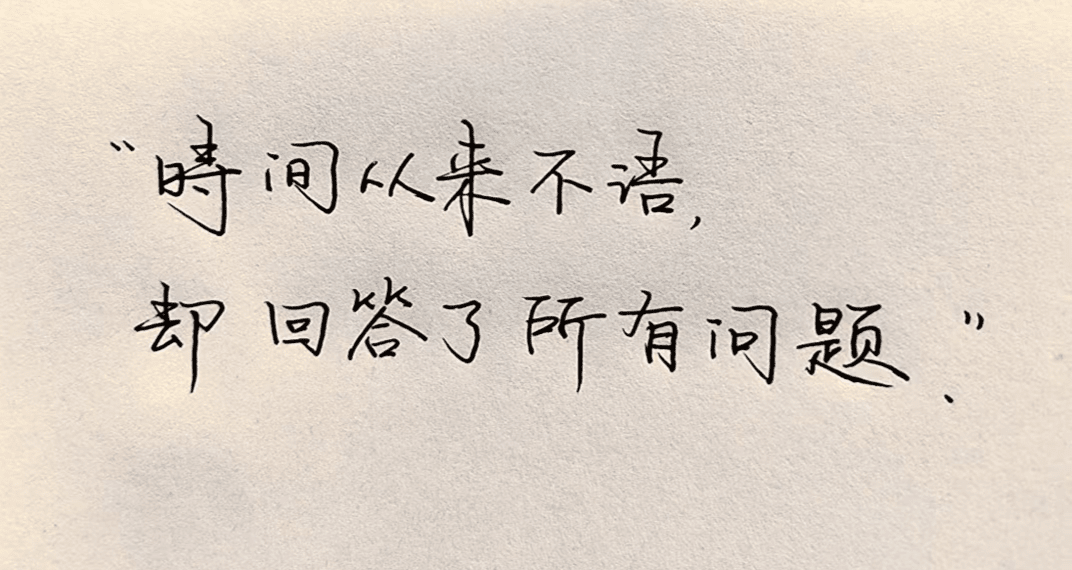 “時间从来不语,
却回答了所有问题.”